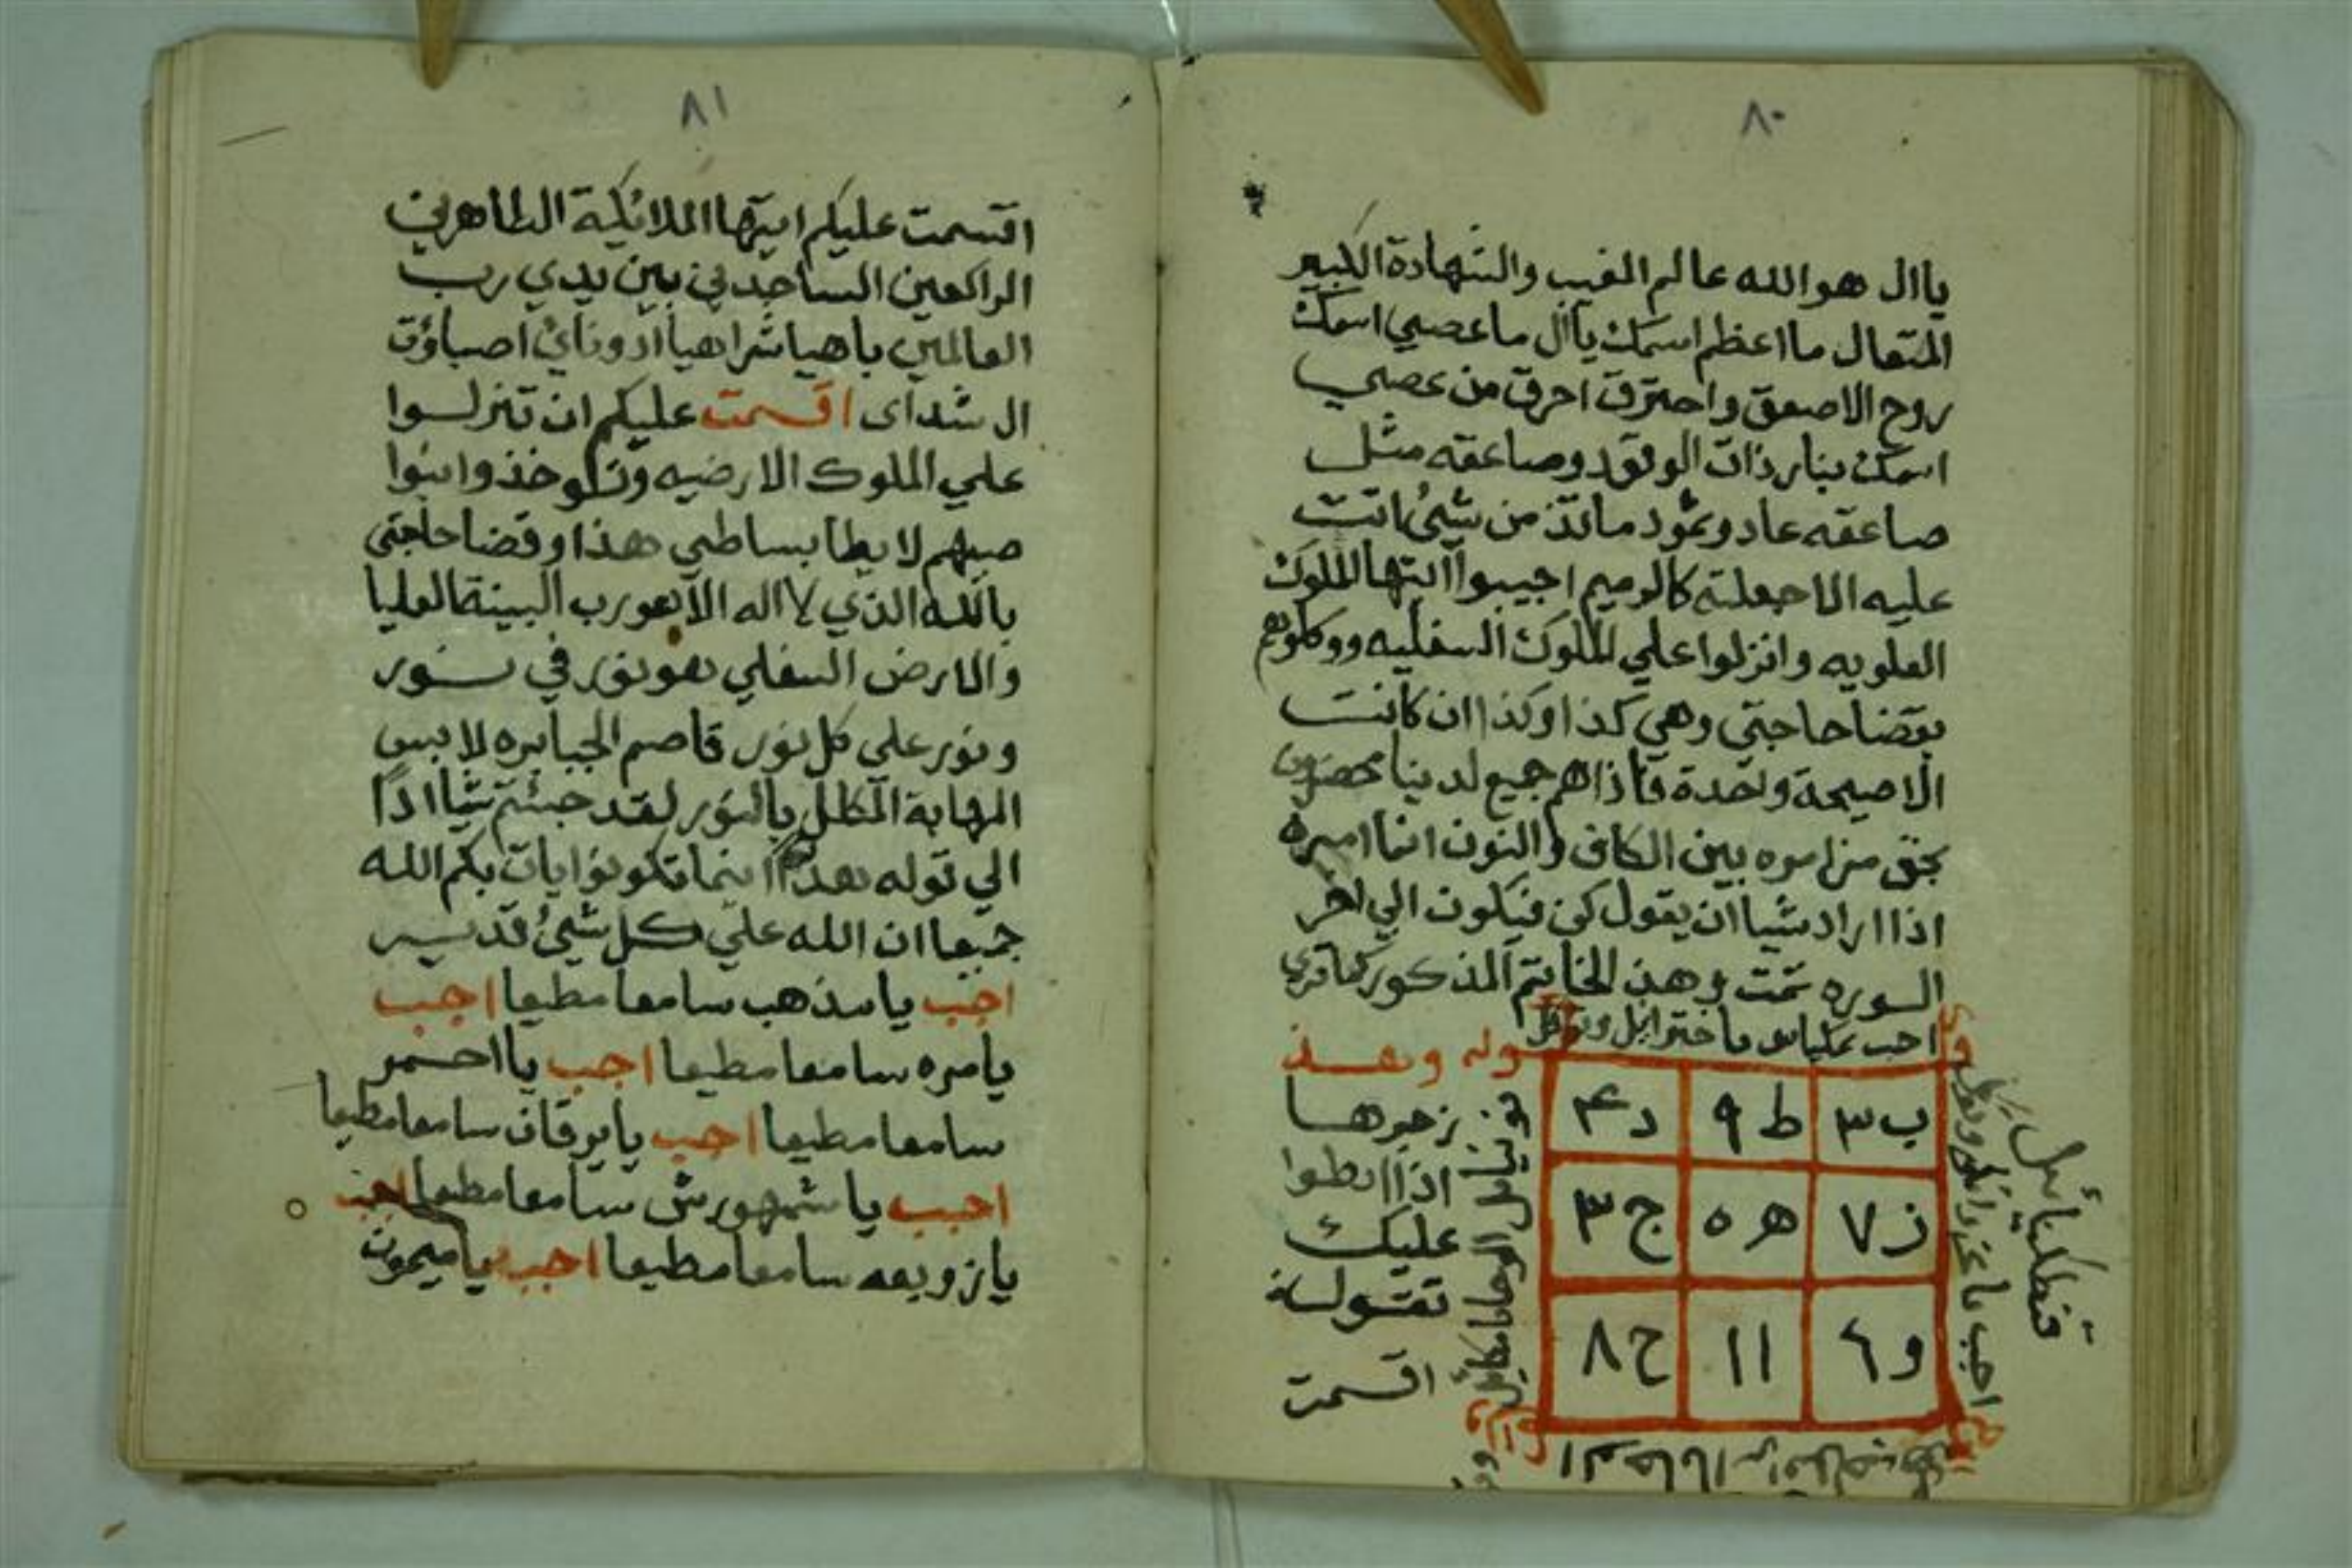 ٨٠
ياال هو الله عالم الغيب والشهادة الكبير
المتعال ما اعظم اسمك ياال ما عصي اسمك
روح الا صعق واحترق احرق من عصي
اسمك بنار ذات الوقد وصاعقه مثل
صاعقه عاد وثمود ماتذر من شيئ اتت
عليه الا جعلته كالرميم اجيبوا ايتها الملوك
العلويه وانزلوا علي الملوك السفليه ووكلوهم
بقضا حاجتي وهي كذا وكذا ان كانت
الا صيحة واحدة فاذاهم جميع لدينا محضرون
بحق من امره بين الكاف والنون انما امره
اذا اراد شيا ان يقول كن فيكون الي اخر
السوره تمت وهذ الخاتم المذكور كما تري
ب ٣ ط ٩ د ۴
ز ٧ ه ٥ ج ٣
و ٦ ١ ١ ح ٨
قوله وهذ
زجرها
اذا ابطوا
عليك
تقوله
اقسمت
٨١
اقسمت عليكم ايتها الملائكية الطاهرين
الراكعين الساجدين بين يدي رب
العالمين باهيا شراهيا ادوناي اصباؤت
ال شداى اقسمت عليكم ان تنزلوا
علي الملوك الارضيه وخذوا بنوا
صيهم لا بطا بساطي هذا وقضا حاجتي
بالله الذي لا اله الا هو رب البينة العليا
والارض السفلي هو نور في نور
ونور علي كل نور قاصم الجبابره لابس
المهابة المكلل بالنور لقد جئتم شيا ادا
الي قوله هدا اينما تكونوا يات بكم الله
جميعا ان الله علي كل شيئ قدير
اجب يا مذهب سامعا مطيعا اجب
يا مره سامعا مطيعا اجب يا احمر
سامعا مطيعا اجب يا برقان سامعا مطيعا
اجب يا شمهورش سامعا مطيعا اجب
يا زوبعه سامعا مطيعا اجب يا ميمون